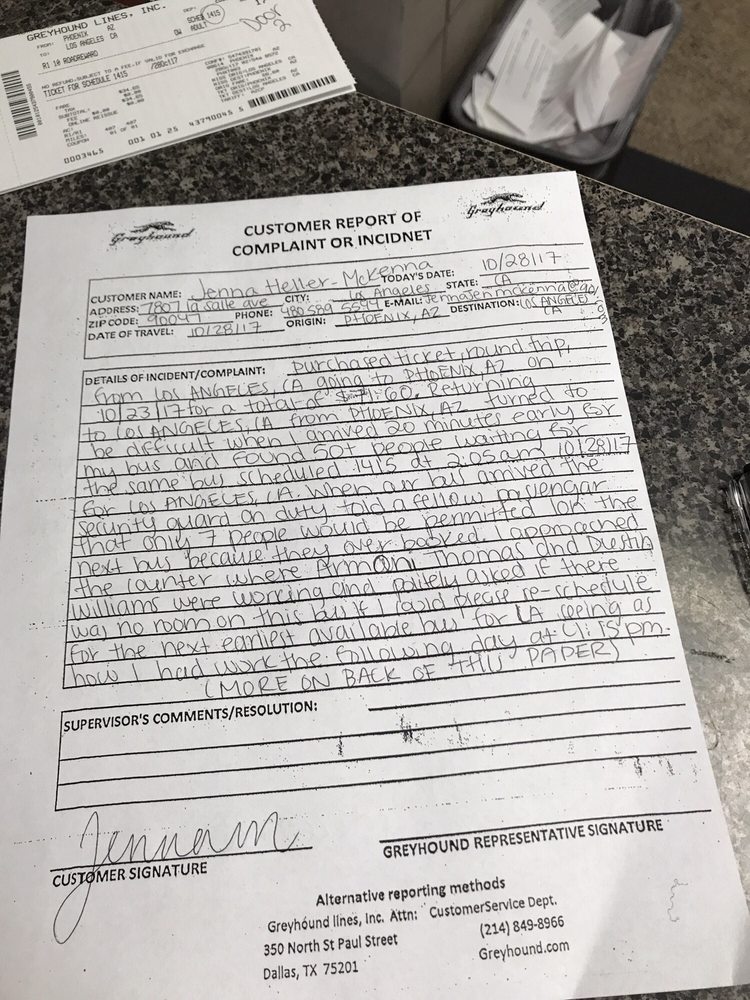 GREYHOUND LINES, INC.
FROM: PHOENIX AZ
TO: LOS ANGELES CA
SCHED 1415
OW ADULT
DOOR 2
R1 10 ROADREWARD
NO REFUND.SUBJECT TO A FEE.IF VALID FOR EXCHANGE
TICKET FOR SCHEDULE 1415
FARE
TAX
SUBTOTAL:
FEE
ONLINE REISSUE
0003465 001 01 25 43790045 5
Greyhound
Greyhound
CUSTOMER REPORT OF
COMPLAINT OR INCIDNET
CUSTOMER NAME: Jenna Heller-McKenna TODAY'S DATE: 10/28/17
ADDRESS: 7807 la salle ave CITY: Los Angeles STATE: CA
ZIP CODE: 90047 PHONE: 480 589 5594 E-MAIL: Jennajen.mckenna@
DATE OF TRAVEL: 10/28/17 ORIGIN: PHOENIX, AZ DESTINATION: LOS ANGELES CA
DETAILS OF INCIDENT/COMPLAINT: purchased ticket, round trip,
from LOS ANGELES, CA going to PHOENIX, AZ on
10/23/17 for a total of $71.60. Returning
to LOS ANGELES, CA from PHOENIX, AZ turned to
be difficult when I arrived 20 minutes early for
my bus and found 50+ people waiting for
the same bus scheduled 1415 at 2:05am 10/28/17
for LOS ANGELES, CA. When our bus arrived the
security guard on duty told a fellow passengar
that only 7 people would be permitted on the
next bus because they over booked. I approached
the counter where Armani Thomas and Dustin
Williams were working and politely asked if there
was no room on this bus if I could please re-schedule
for the next earliest available bus for LA seeing as
how I had work the following day at 4:15 pm.
(MORE ON BACK OF THIS PAPER)
SUPERVISOR'S COMMENTS/RESOLUTION:
Jennam
CUSTOMER SIGNATURE
GREYHOUND REPRESENTATIVE SIGNATURE
Alternative reporting methods
Greyhound lines, Inc. Attn: CustomerService Dept.
350 North St Paul Street (214) 849-8966
Dallas, TX 75201 Greyhound.com